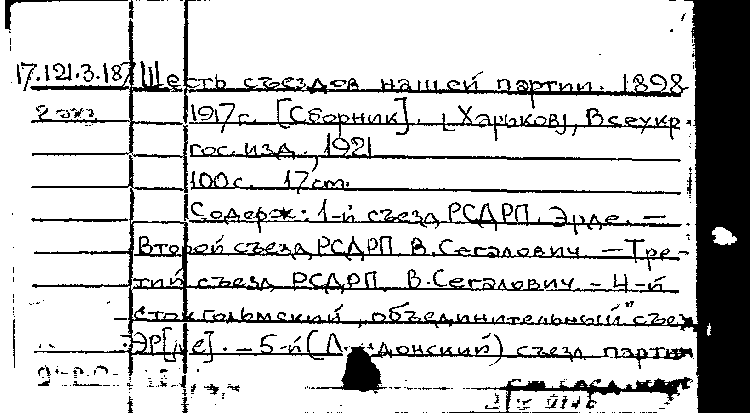 17.121.3.187 Шесть съездов нашей партии. 1898
2 экз. 1917 г. [Сборник]. [Харьков], Всеукр.
гос. изд., 1921
100 с. 17 cm.
Содерж: 1-й съезд РСДРП. Эрде. —
Второй съезд РСДРП В. Сегалович — Тре-
тий съезд РСДРП В. Сегалович — 4-й
стокгольмский „объединительный" съезд
ЭР[де]. — 5-й (Лондонский) съезд партии
см. след. карт